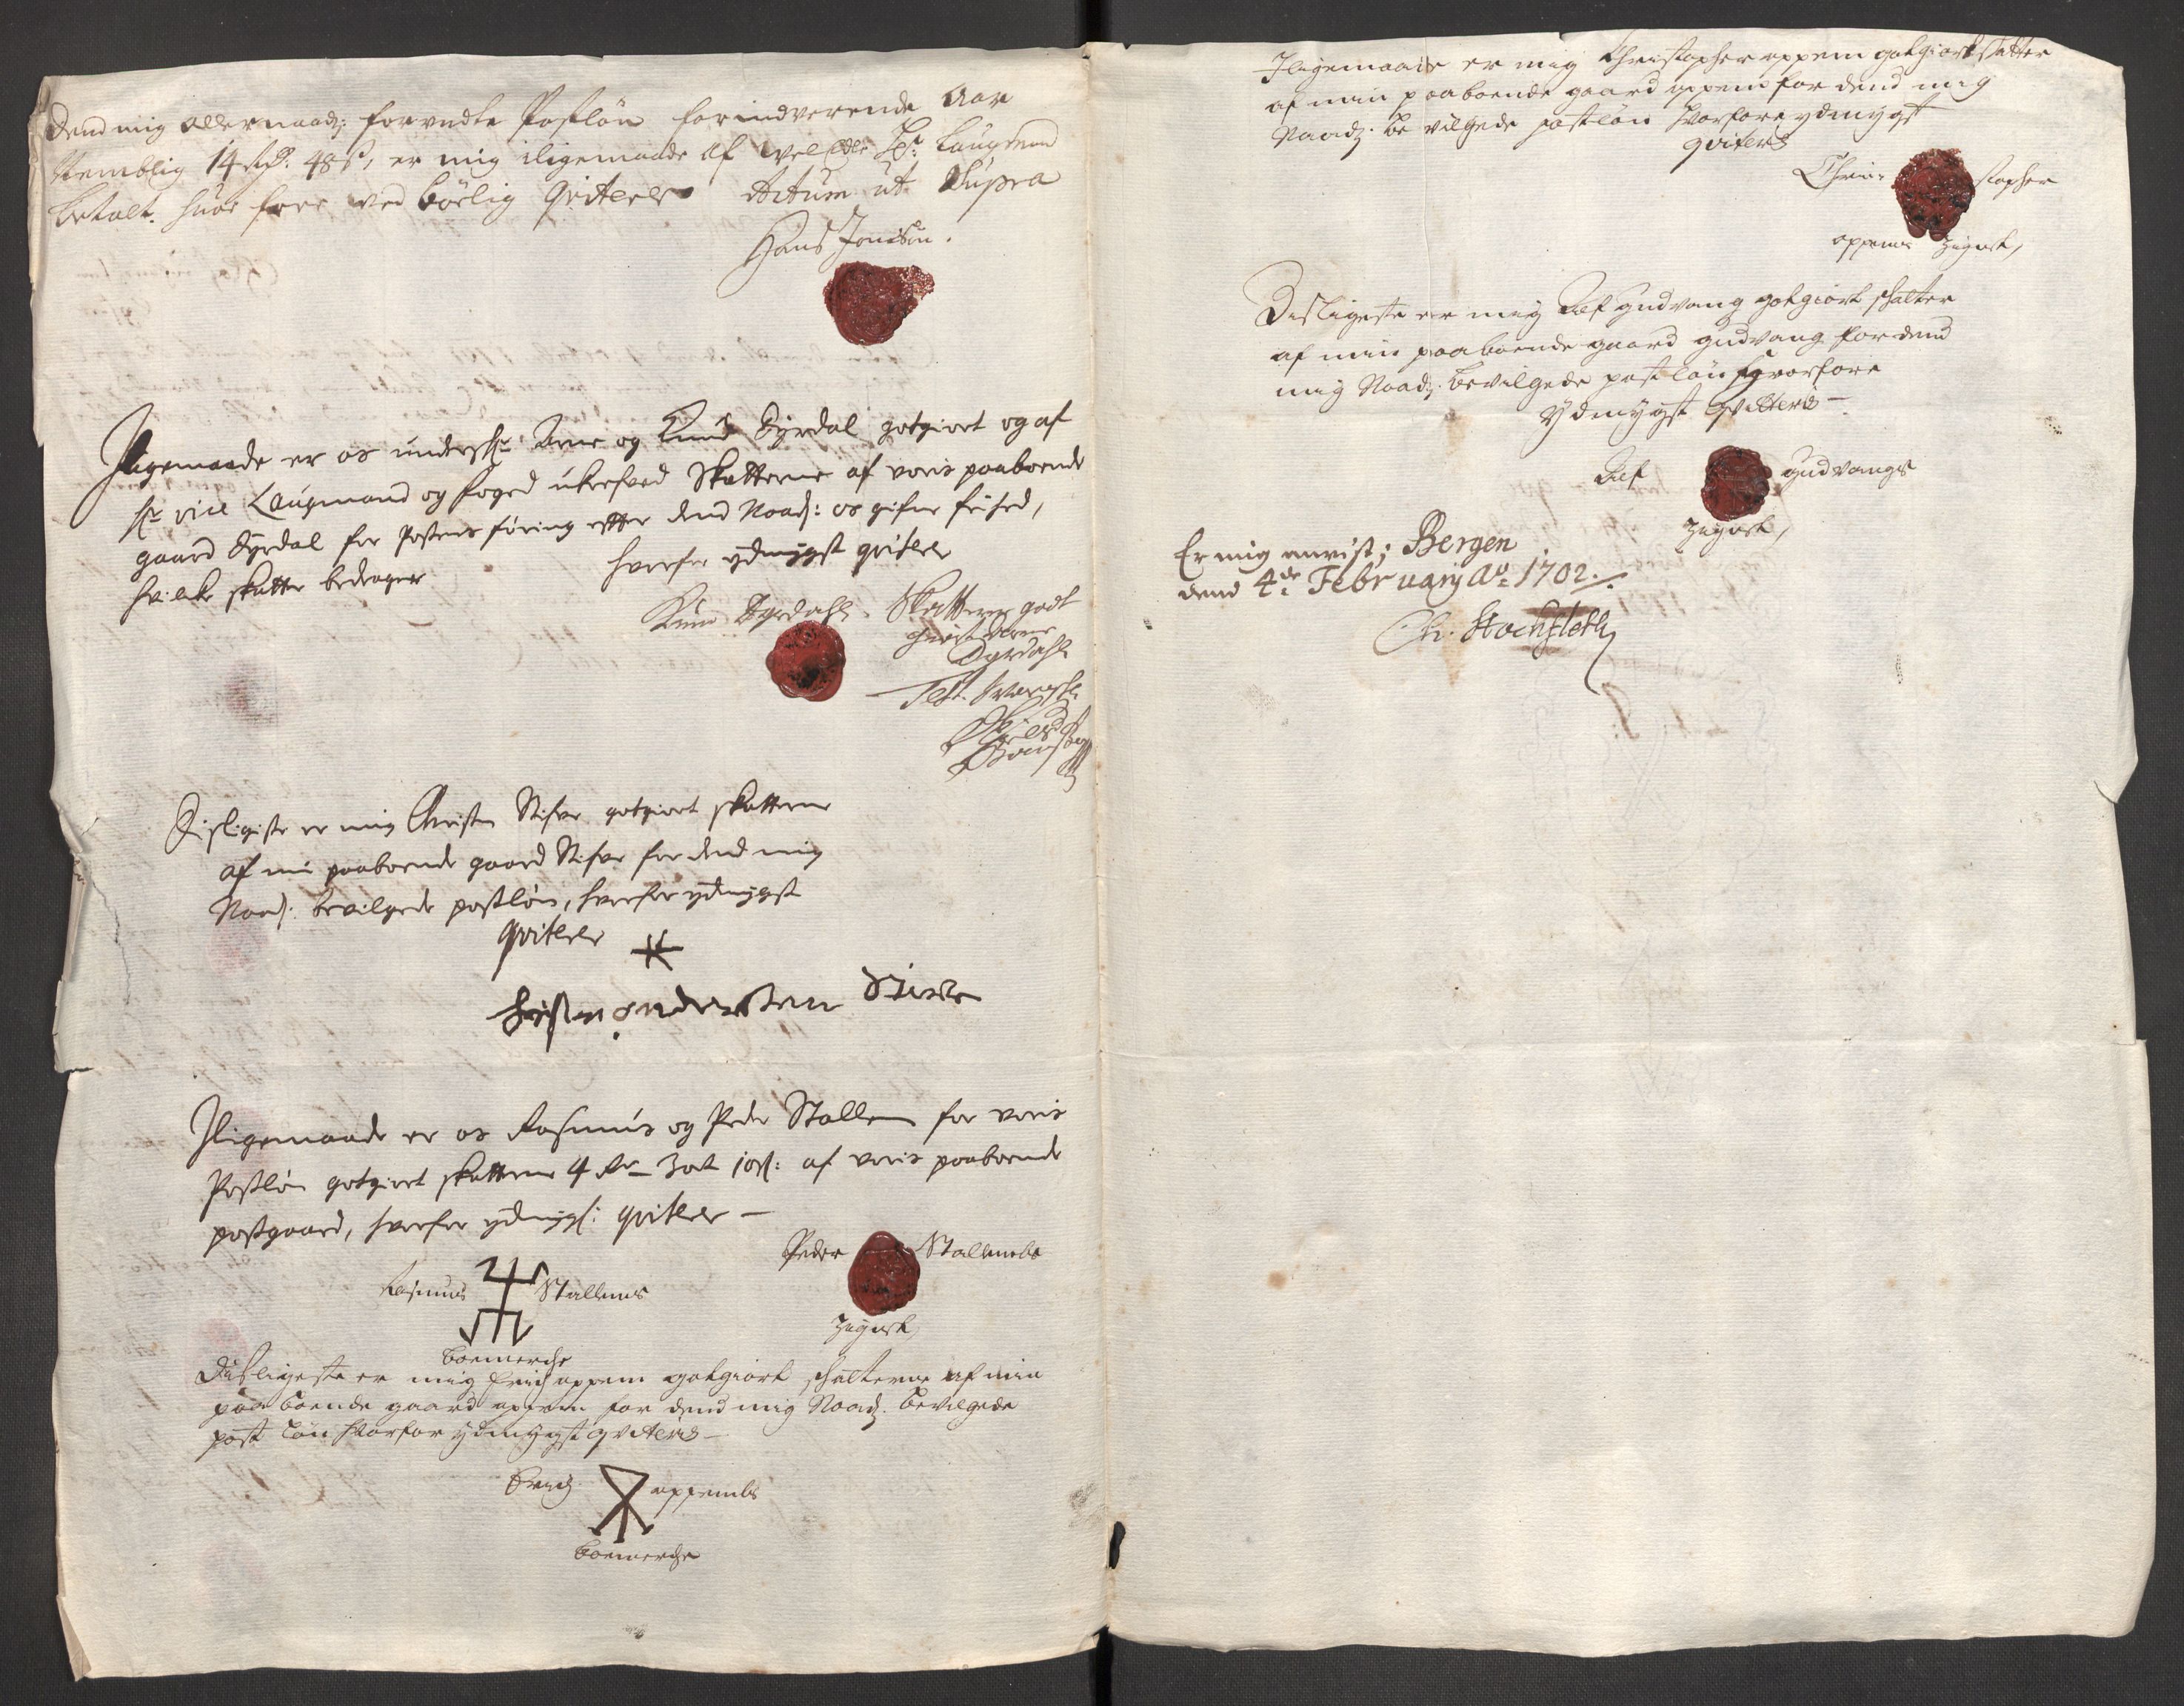 Dend mig allernaad: forundte Postlön for indverende Aar
Nemblig 14 Rd: 48 s, er mig iligemaade af Vel Edle Hr: Laugmand
betalt. huor fore ved börlig Qviterer Actum ut Supra
Hans Jonsøn.
Iligemaade er os undersk: Arne og Knud Dyrdal gotgiort og af
Hr vice Laugmand og foged ukrefved Skatterne af voris paaboende
gaard Dyrdal for Postens föring efter dend Naad: os gifne frihed,
hvilke skatter bedrager hvorfor ydmygst qviterer
Knud Dyrdahl. Skatterne godt
giort Arne
Dyrdahl
Test.
Disligiste er mig Christen Stifve gotgiort skatterne
af min paaboende gaard Stifve for dend mig
Naad: bevilgede postlön, hvorfor ydmygst
qviterer
Christen Andersen Stifve
Iligemaade er os Rasmus og Peder Stallem for voris
Postlön gotgiort skatterne 4 Rd 3 ort 10 s: af voris paaboende
postgaard, hvorfor ydmygst: qviterer —
Peder Stallembs
Zignet,
Rasmus Stallembs
boemerche
Disligeste er mig Erich oppem gotgiort schatterne af min
paaboende gaard oppem for dend mig Naad. bevilgede
post lön hvorfor ydmygst qviteris —
Erich oppembs
boemerche
Iligemaade er mig Christopher oppem gotgiort skatter
af min paaboende gaard oppem for dend mig
Naad: bevilgede postlön hvorfore ydmygst
qviteris
Chri- stopher
oppems Zignet,
Disligeste er mig Rolf gudvang gotgiort schatter
af min paaboende gaard gudvang for dend
mig Naad: bevilgede post lön hvorfore
ydmygst qviteris —
gudvangs
Zignet,
Er mig anvist; Bergen
dend 4de February Ao 1702.
Ch. Stockfleth